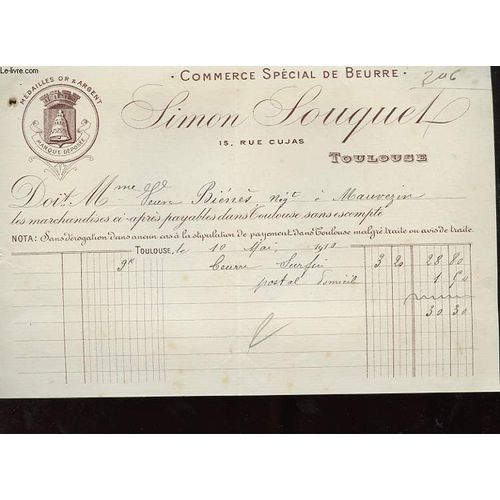 Le-livre.com
COMMERCE SPÉCIAL DE BEURRE
206
MEDAILLES OR & ARGENT
MARQUE DEPOSÉE
Simon Souquet
15, RUE CUJAS
TOULOUSE
Doit Mme Vve Biénès Négt à Mauvezin
les marchandises ci-après payables dans Toulouse sans escompte
NOTA: Sans dérogation dans aucun cas à la stipulation de payement dans Toulouse malgré traite ou avis de traite.
TOULOUSE, le 10 Mai 1910
9k Beurre Surfin 3 20 28.80
postal domicile 1 50
30.30